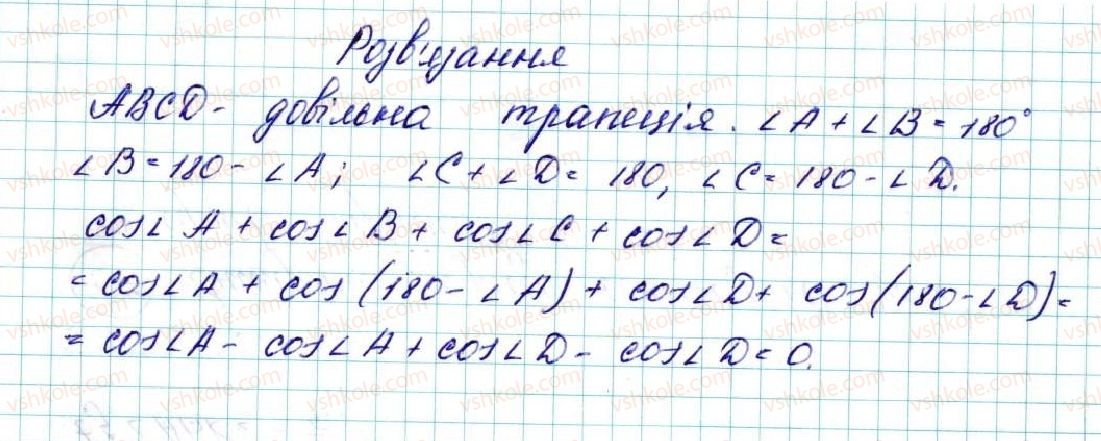 Розв'язання
ABCD - довільна трапеція. ∠A + ∠B = 180°
∠B = 180 - ∠A; ∠C + ∠D = 180, ∠C = 180 - ∠D.
cos∠A + cos∠B + cos∠C + cos∠D =
= cos∠A + cos(180 - ∠A) + cos∠D + cos(180 - ∠D) =
= cos∠A - cos∠A + cos∠D - cos∠D = 0.
vshkole.com